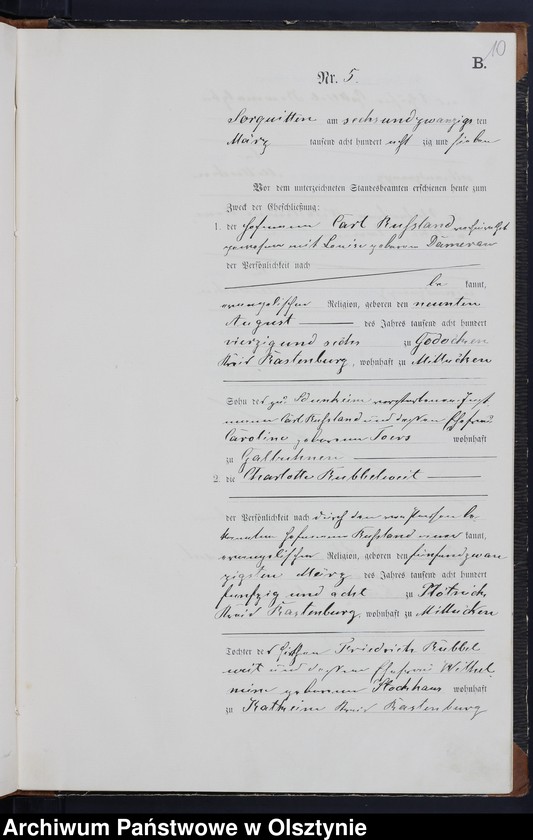 10
B.
Nr. 5.
Sorquitten am sechsundzwanzigsten
März tausend acht hundert acht zig und sieben
Vor dem unterzeichneten Standesbeamten erschienen heute zum
Zweck der Eheschließung:
1. der Hofmann Carl Rußland
gewesen mit Louise geborene Damerau
der Persönlichkeit nach
be kannt,
evangelischer Religion, geboren den neunten
August des Jahres tausend acht hundert
vierzig und sechs zu
Kreis Rastenburg, wohnhaft zu Millucken
Sohn des zu verstorbenen Inst
mann Carl Rußland und dessen Ehefrau
Caroline geborenen wohnhaft
zu Galbuhnen
2. die Charlotte Kubbelweit
der Persönlichkeit nach durch den von Person be
kannten Hofmann Rußland kannt,
evangelischer Religion, geboren den fünfundzwan
zigsten März des Jahres tausend acht hundert
funfzig und acht zu
Kreis Rastenburg, wohnhaft zu Millucken
Tochter des Friedrich Kubbel
weit und dessen Ehefrau Wilhel
mine geborenen wohnhaft
zu Kreis Rastenburg
Archiwum Państwowe w Olsztynie